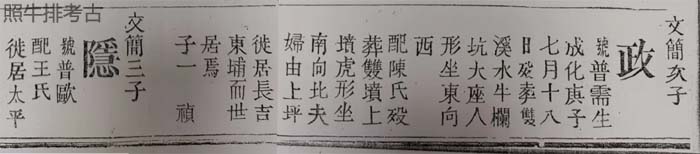 照牛排考古
文簡次子
政
號普需生
成化庚子
七月十八
日歿葬雙
溪水牛欄
坑大座人
形坐東向
西
配陳氏歿
葬雙墳上
墳虎形坐
南向北夫
婦由上坪
徙居長吉
東埔而世
居焉
子一 禎
文簡三子
隱
號普歐
配王氏
徙居太平